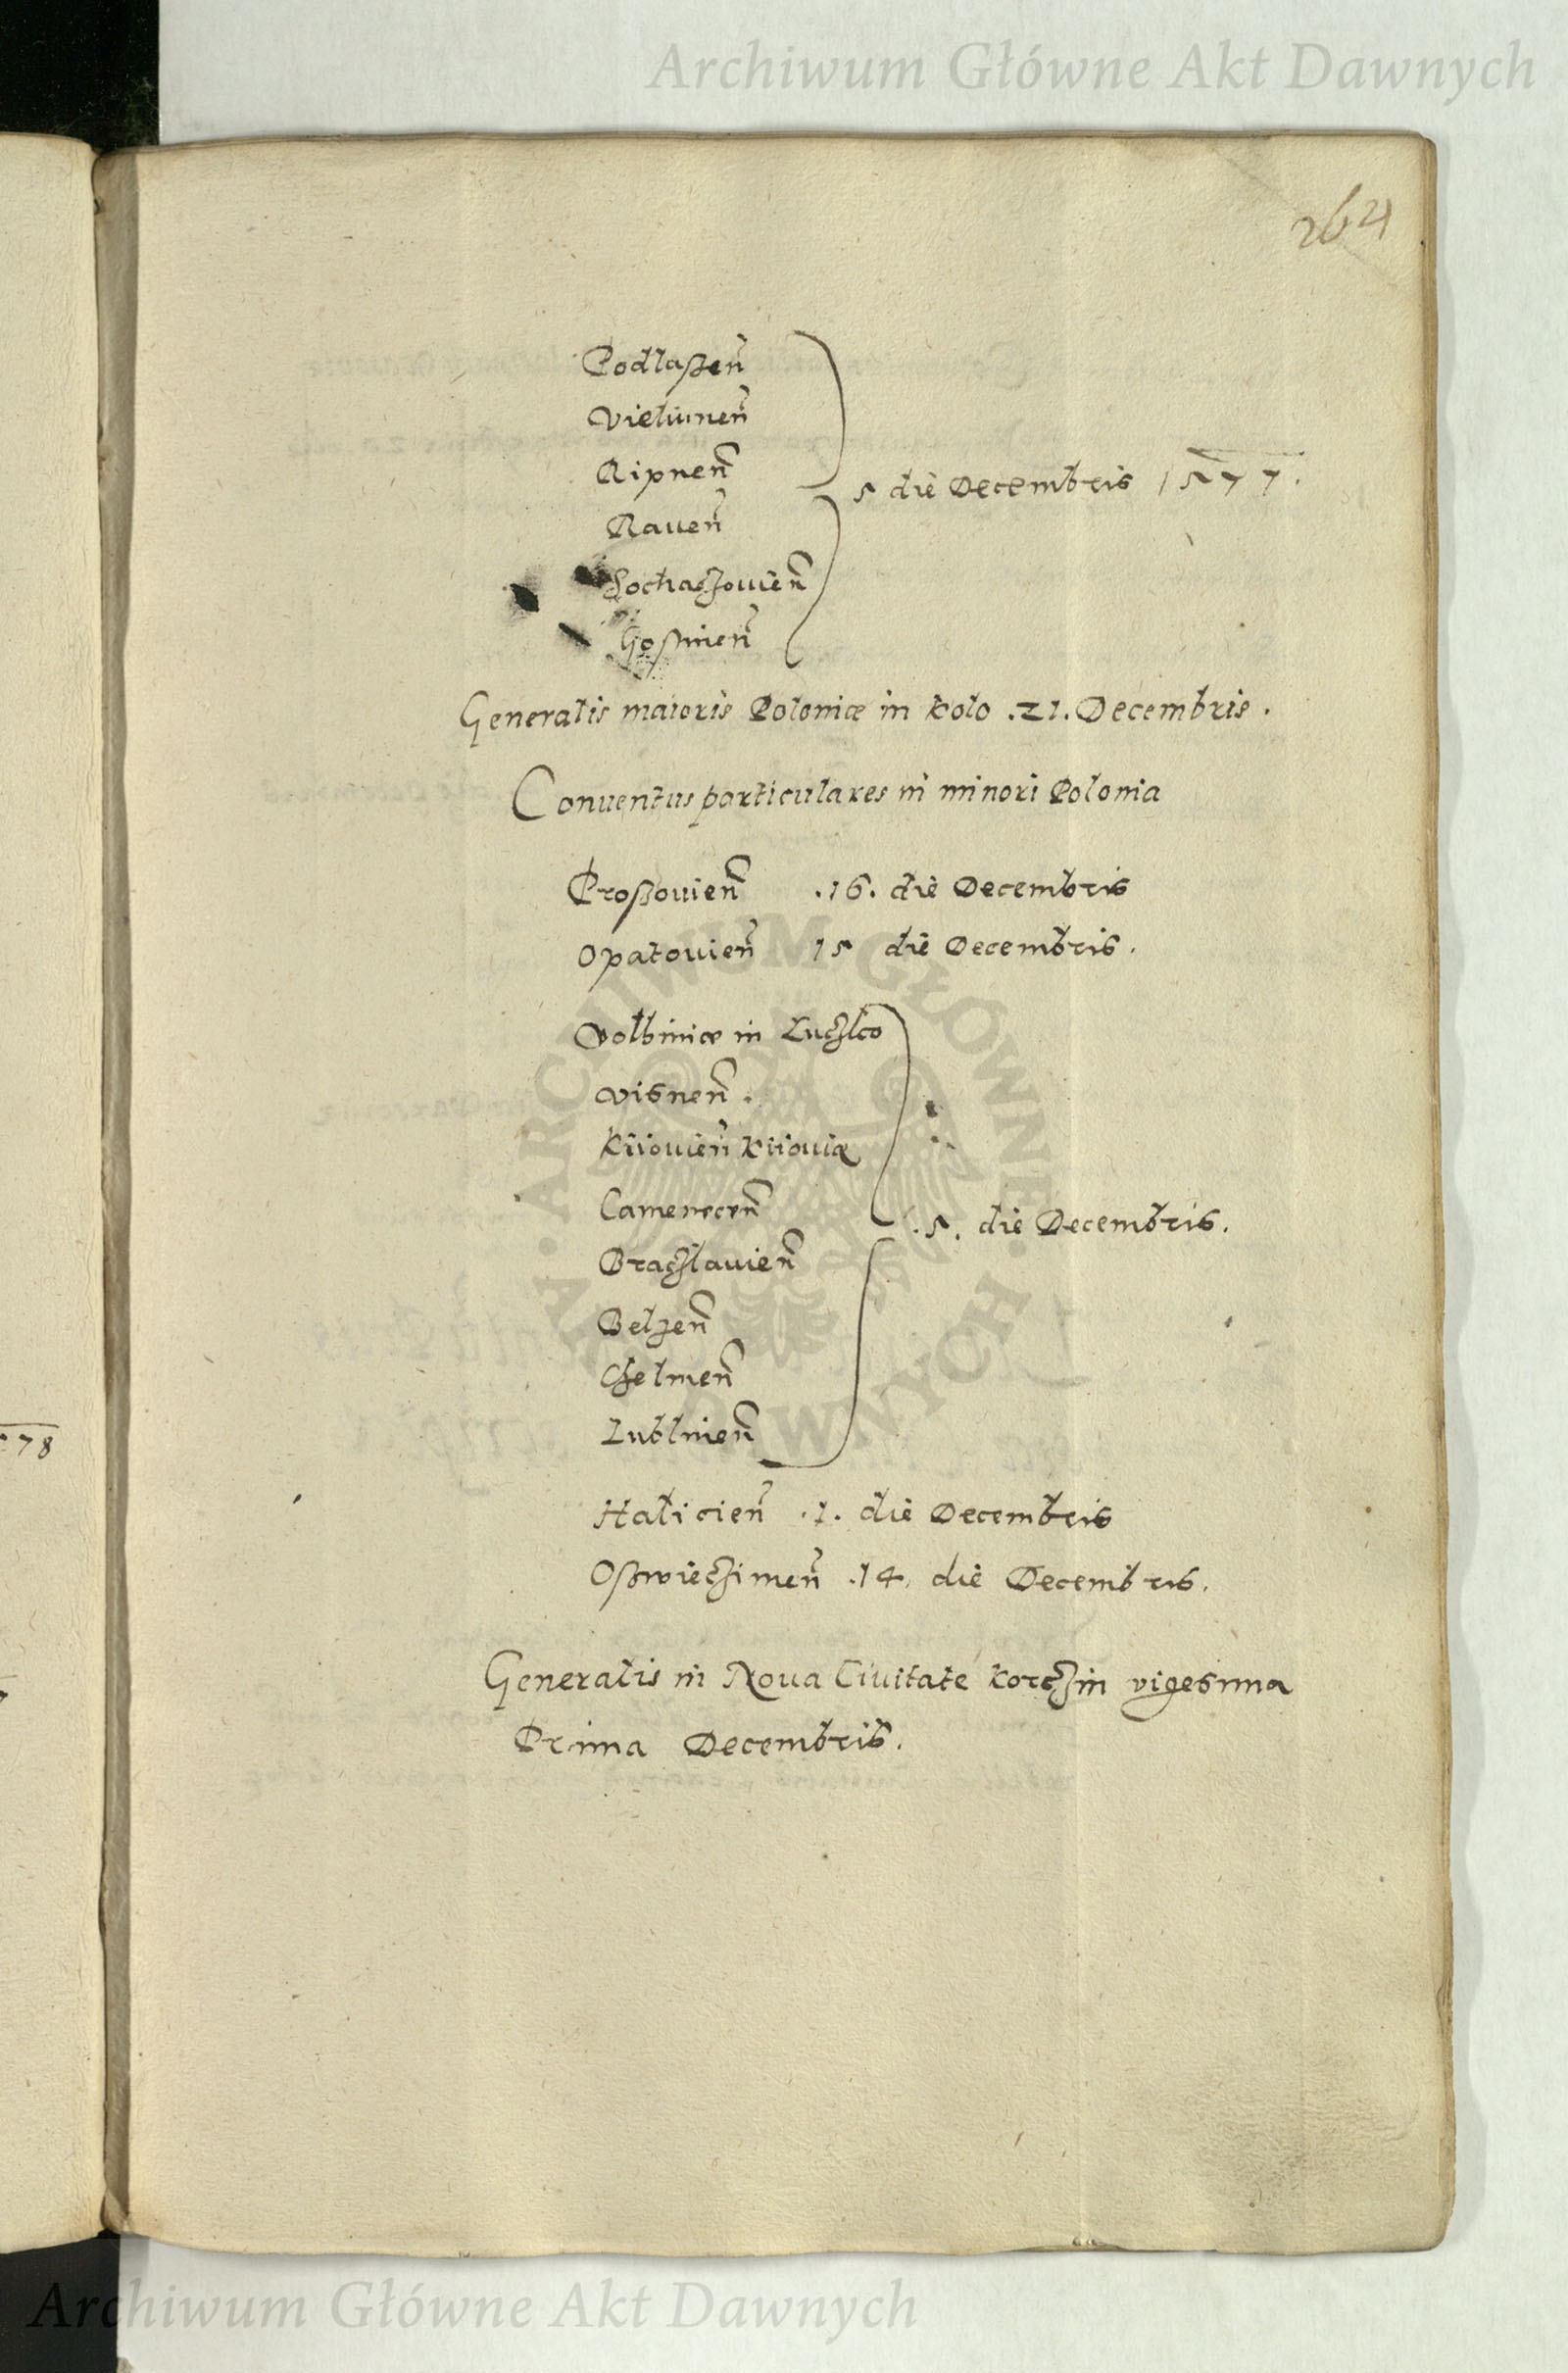 Archiwum Główne Akt Dawnych
264
Podlaßen̄
Vielunen̄
Ripnen̄
Rauen̄
5 die Decembris 1577.
Sochaczouien̄
Gostinen̄
Generalis maioris Poloniæ in Kolo .21. Decembris.
Conuentus particulares in minori Polonia
Proßouien̄ .16. die Decembris
Opatouien̄ 15 die Decembris.
Volhiniæ in Luczko
Visnen̄.
Kiiouien̄ Kiiouiæ
Camenecen̄
.5. die Decembris.
Braczlauien̄
Belzen̄
Chelmen̄
Lublinen̄
Halicien̄ .1. die Decembris
Oßwieczimen̄ .14. die Decembris.
Generalis in Noua Ciuitate Korczin vigesima
Prima Decembris.
78
ARCHIWUM GŁÓWNE AKT DAWNYCH
Archiwum Główne Akt Dawnych